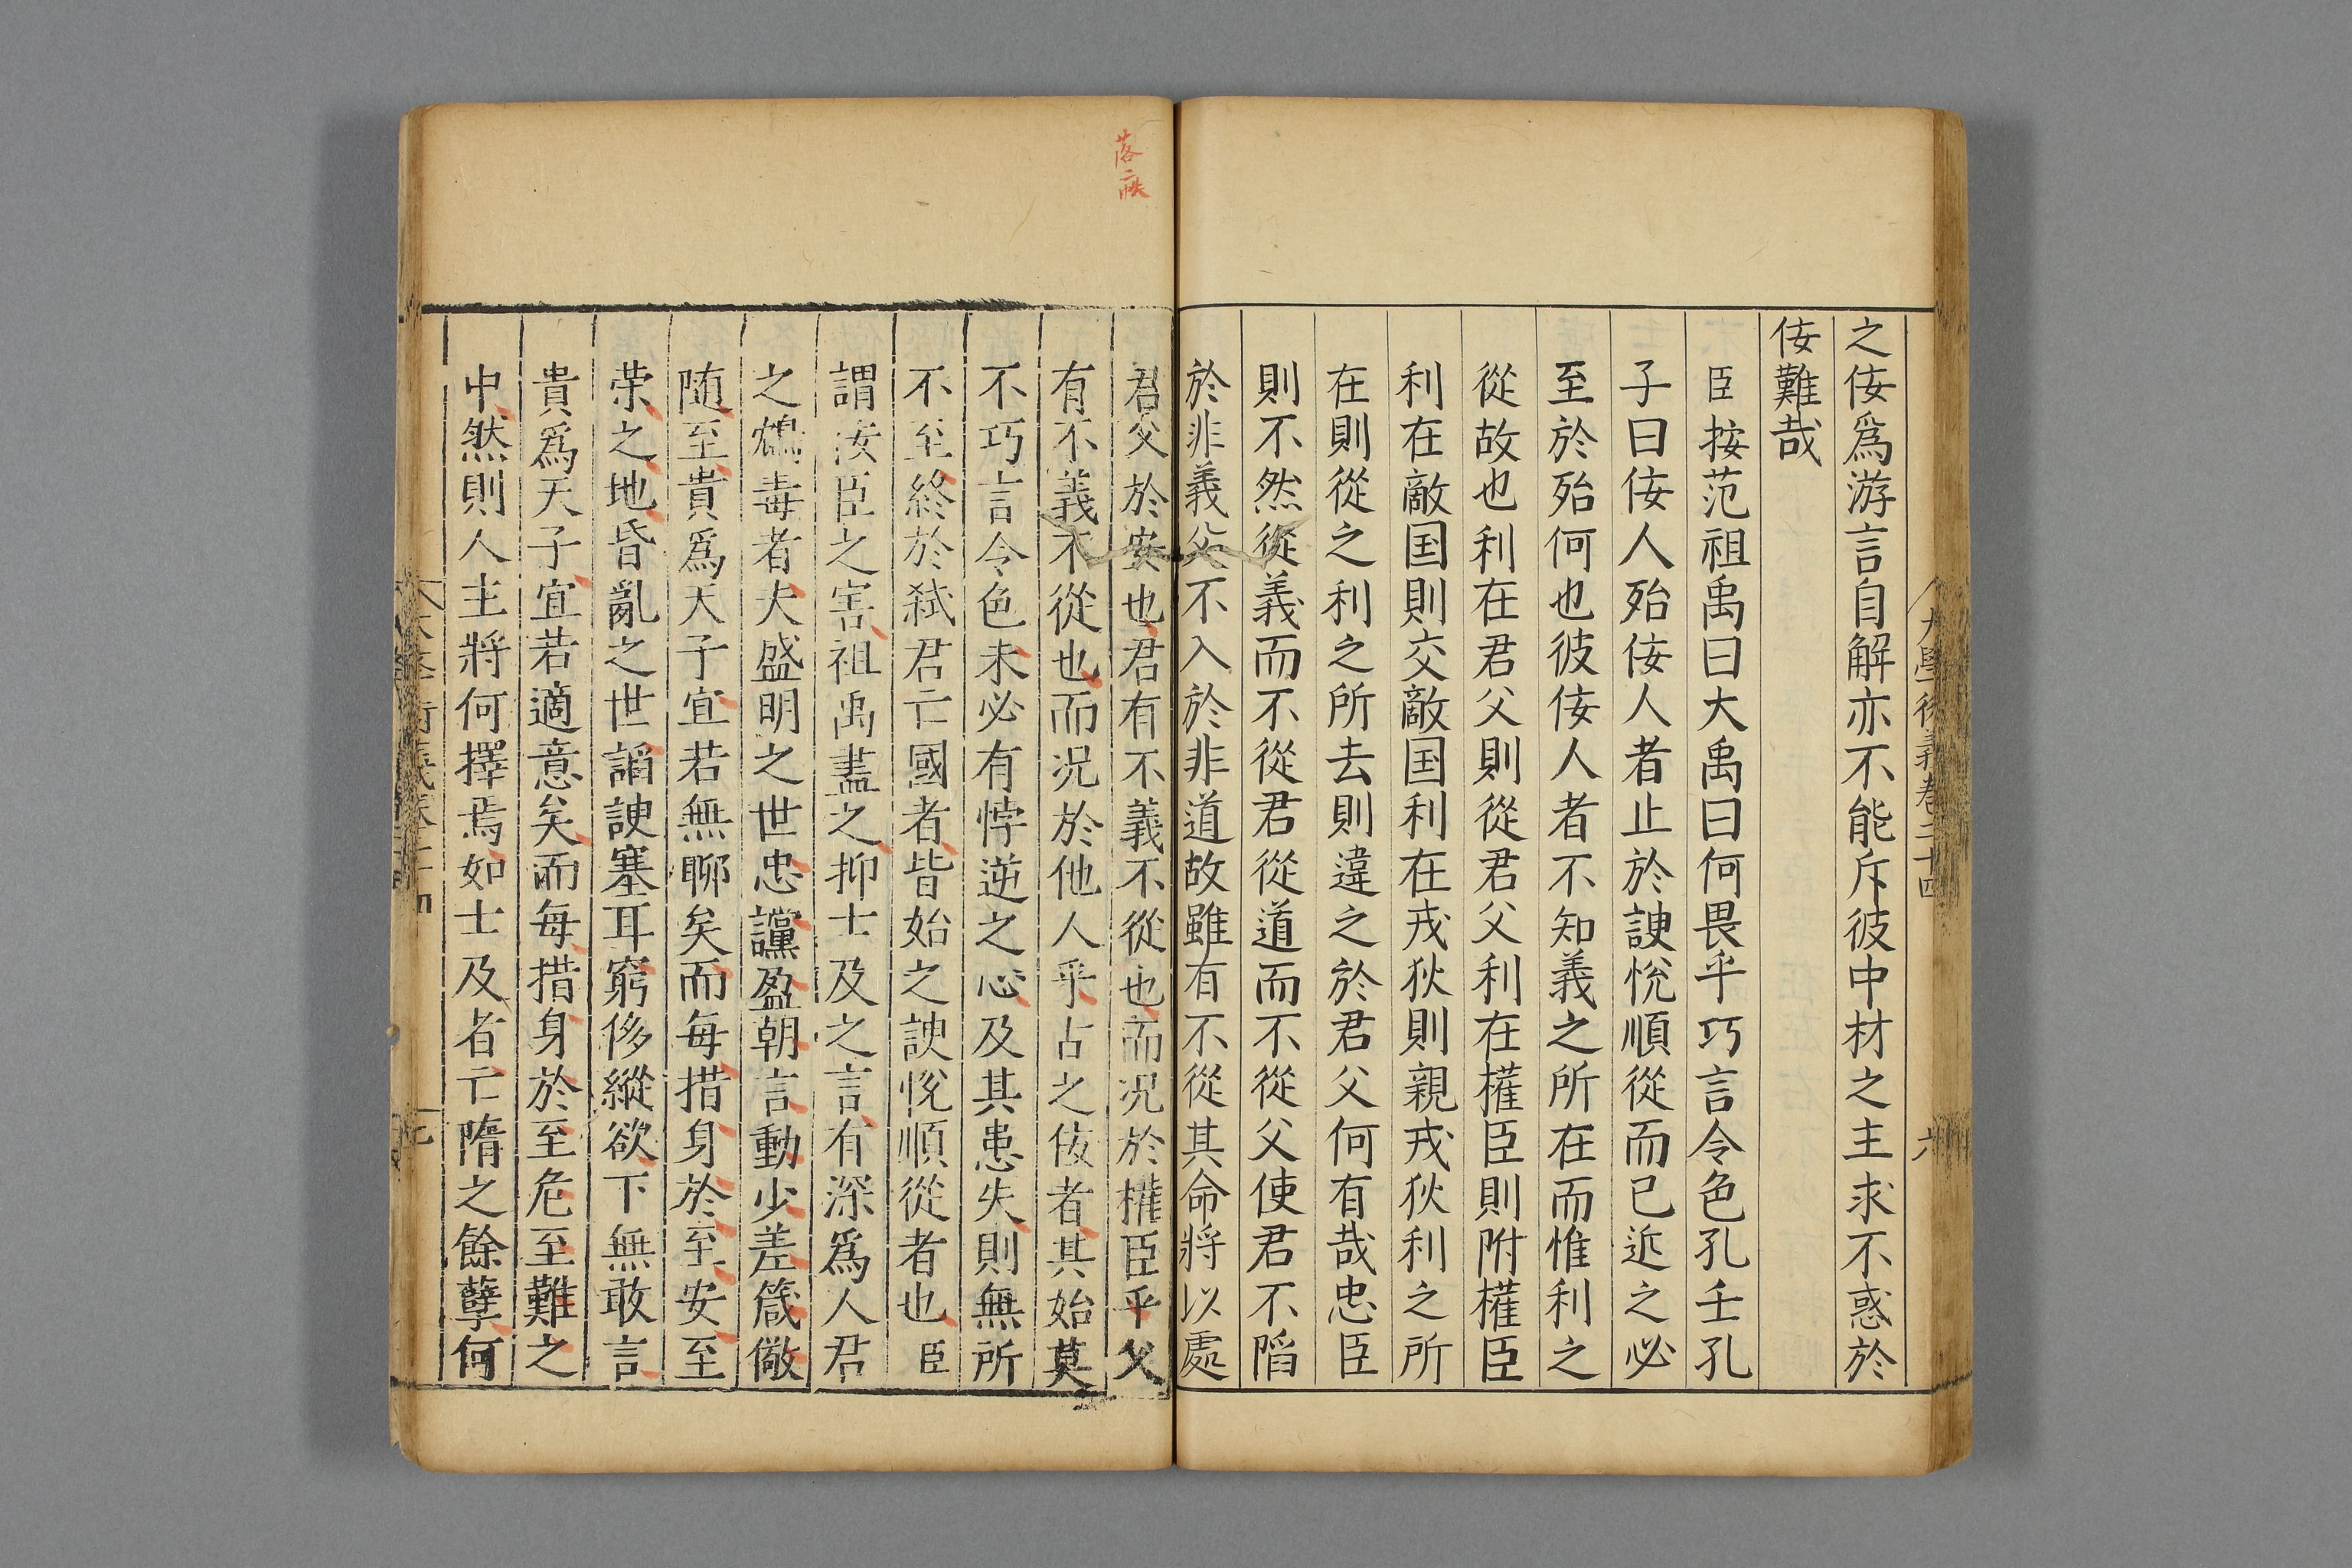 之佞爲游言自解亦不能斥彼中材之主求不惑於
佞難哉
臣按范祖禹曰大禹曰何畏乎巧言令色孔壬孔
子曰佞人殆佞人者止於諛悅順從而已近之必
至於殆何也彼佞人者不知義之所在而惟利之
從故也利在君父則從君父利在權臣則附權臣
利在敵国則交敵国利在戎狄則親戎狄利之所
在則從之利之所去則違之於君父何有哉忠臣
則不然從義而不從君從道而不從父使君不陷
於非義父不入於非道故雖有不從其命將以處
君父於安也君有不義不從也而况於權臣乎父
有不義不從也而况於他人乎古之佞者其始莫
不巧言令色未必有悖逆之心及其患失則無所
不至終於弑君亡國者皆始之諛悅順從者也臣
謂佞臣之害祖禹盡之抑士及之言有深爲人君
之鴆毒者夫盛明之世忠讜盈朝言動少差箴儆
随至貴爲天子宜若無聊矣而每措身於至安至
荣之地昏亂之世謟諛塞耳窮侈縱欲下無敢言
貴爲天子宜若適意矣而每措身於至危至難之
中然則人主將何擇焉如士及者亡隋之餘孽何
大學衍義卷二十四
六
落二帙